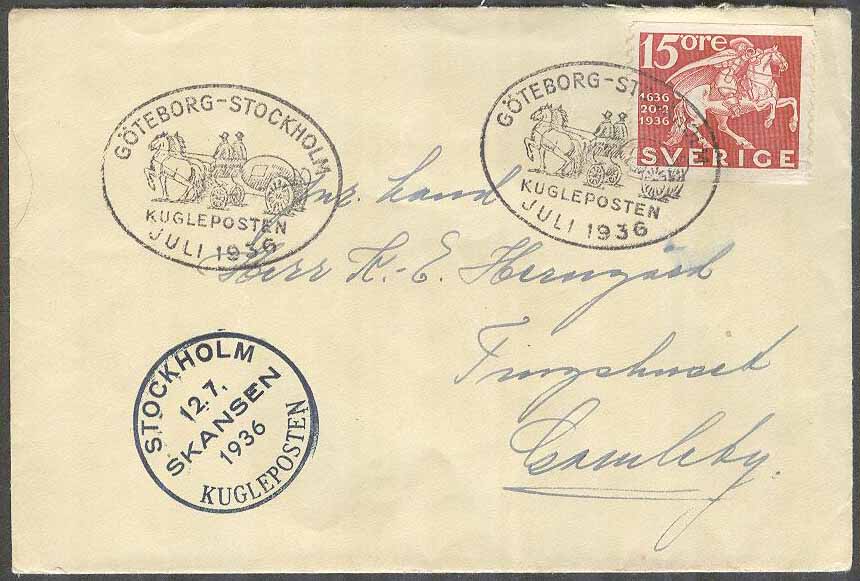 GÖTEBORG-STOCKHOLM
KUGLEPOSTEN
JULI 1936
GÖTEBORG-ST
KUGLEPOSTEN
JULI 1936
15 öre
1636
20-2
1936
SVERIGE
Land
Herr K.-E. Herngård
Tingshuset
Gamleby
STOCKHOLM
12.7.
SKANSEN
1936
KUGLEPOSTEN